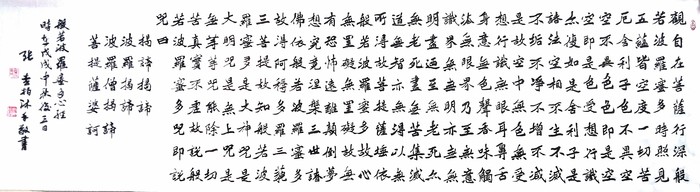 觀自在菩薩行深般
若波羅蜜多時照見
五蘊皆空度一切苦
厄舍利子色不異空
空不異色色即是空
空即是色受想行識
亦復如是舍利子是
諸法空相不生不滅
不垢不淨不增不減
是故空中無色無受
想行識無眼耳鼻舌
身意無色聲香味觸
法無眼界乃至無意
識界無無明亦無無
明盡乃至無老死亦
無老死盡無苦集滅
道無智亦無得以無
所得故菩提薩埵依
般若波羅蜜多故心
無罣礙無罣礙故無
有恐怖遠離顛倒夢
想究竟涅槃三世諸
佛依般若波羅蜜多
故得阿耨多羅三藐
三菩提故知般若波
羅蜜多是大神咒是
大明咒是無上咒是
無等等咒能除一切
苦真實不虛故說般
若波羅蜜多咒即說
咒曰
揭諦揭諦
波羅揭諦
波羅僧揭諦
菩提薩婆訶
般若波羅蜜多心經
時在戊戌年後三日
張沐手敬書